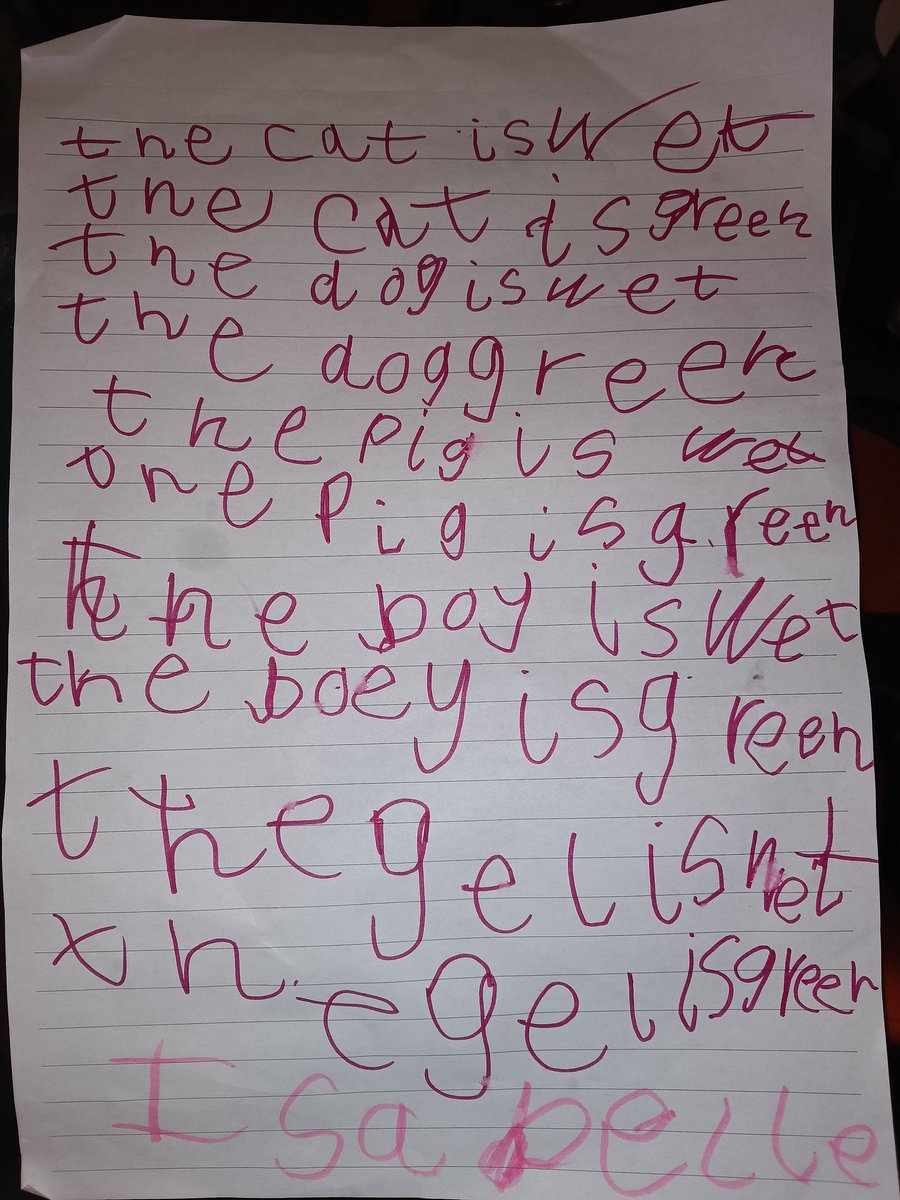 the cat is wet
the cat is green
the dog is wet
the dog green
the pig is wet
the pig is green
the boy is wet
the boey is green
the gel is wet
the gel is green
Isabelle